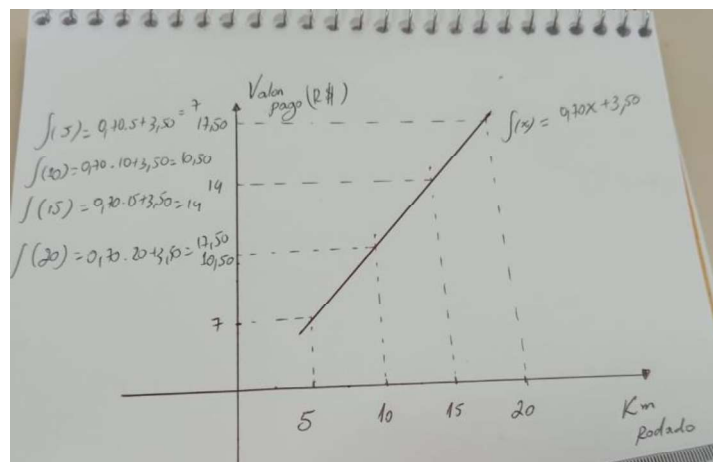 Valor
pago (R$)
f(5) = 0,70.5+3,50 = 7
f(10)=0,70.10+3,50=10,50
f(15)=0,70.15+3,50=14
f(20)=0,70.20+3,50=17,50
17,50
14
10,50
7
f(x) = 0,70x+3,50
5 10 15 20
Km
Rodado